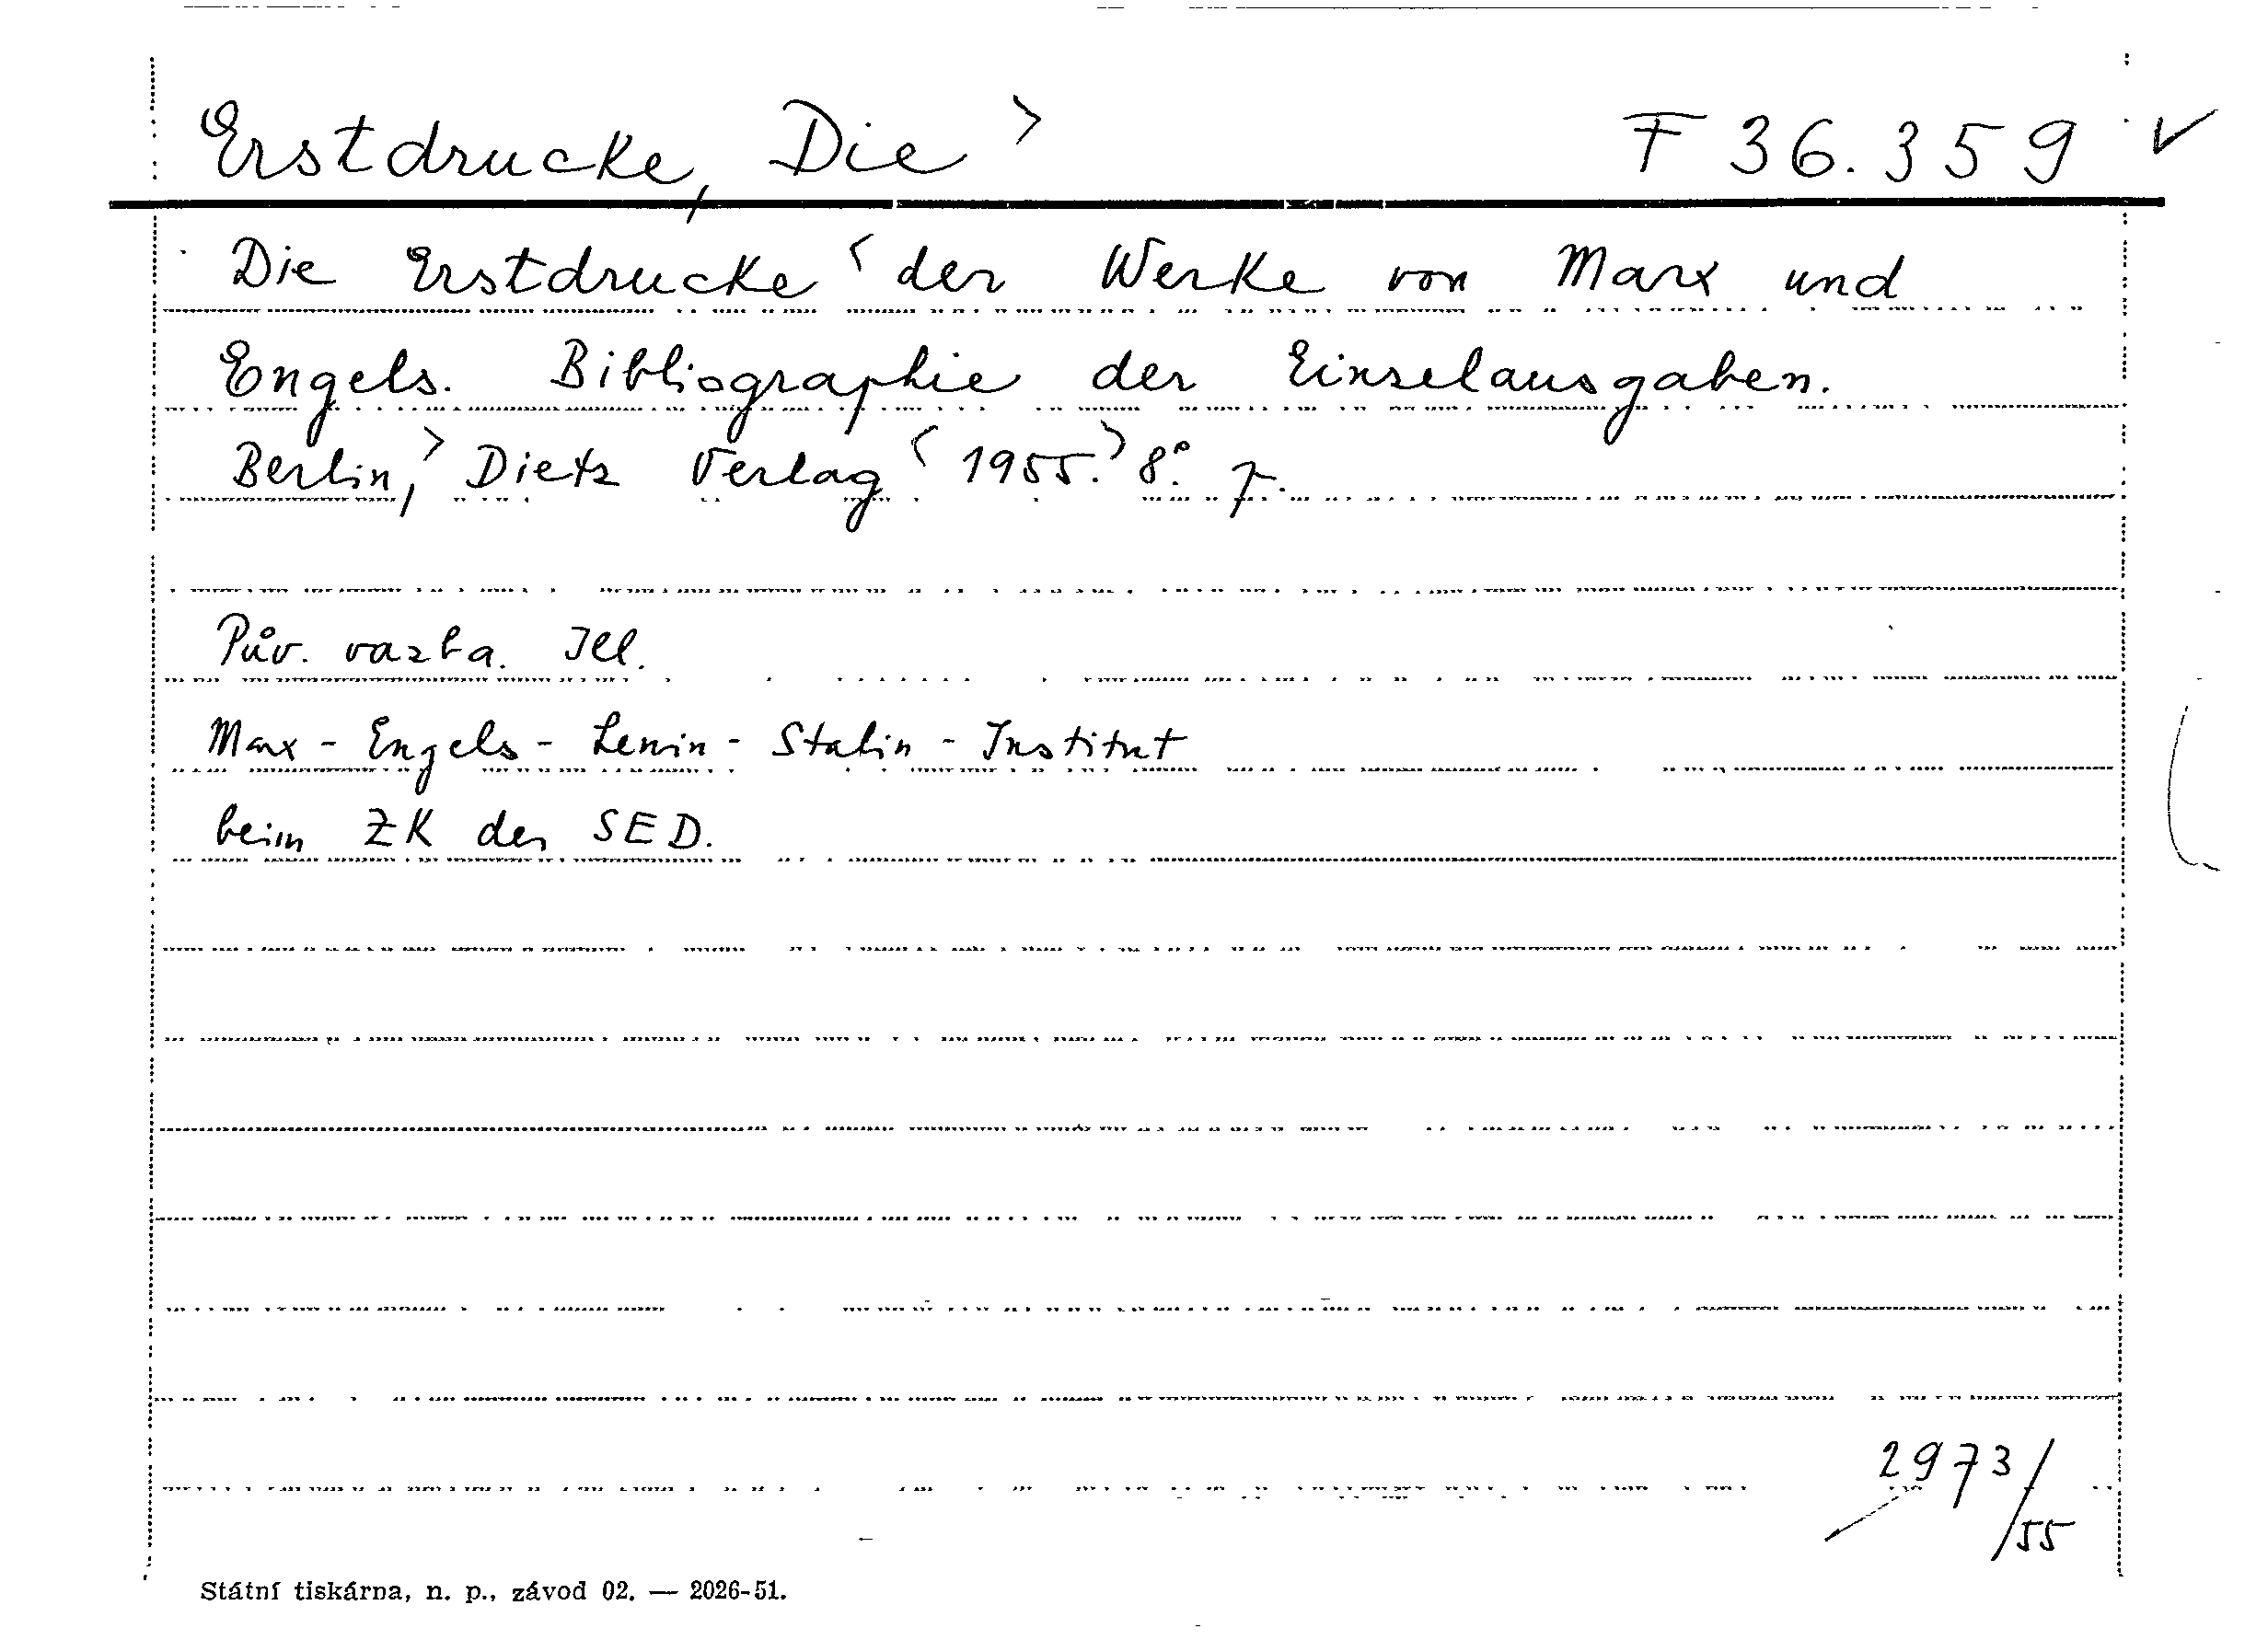 Erstdrucke, Die > F 36.359 ✓
Die Erstdrucke < der Werke von Marx und
Engels. Bibliographie der Einzelausgaben.
Berlin, > Dietz Verlag < 1955. > 8°.
Pův. vazba. Ill.
Marx - Engels - Lenin - Stalin - Institut
beim ZK der SED.
2973/55
Státní tiskárna, n. p., závod 02. — 2026-51.